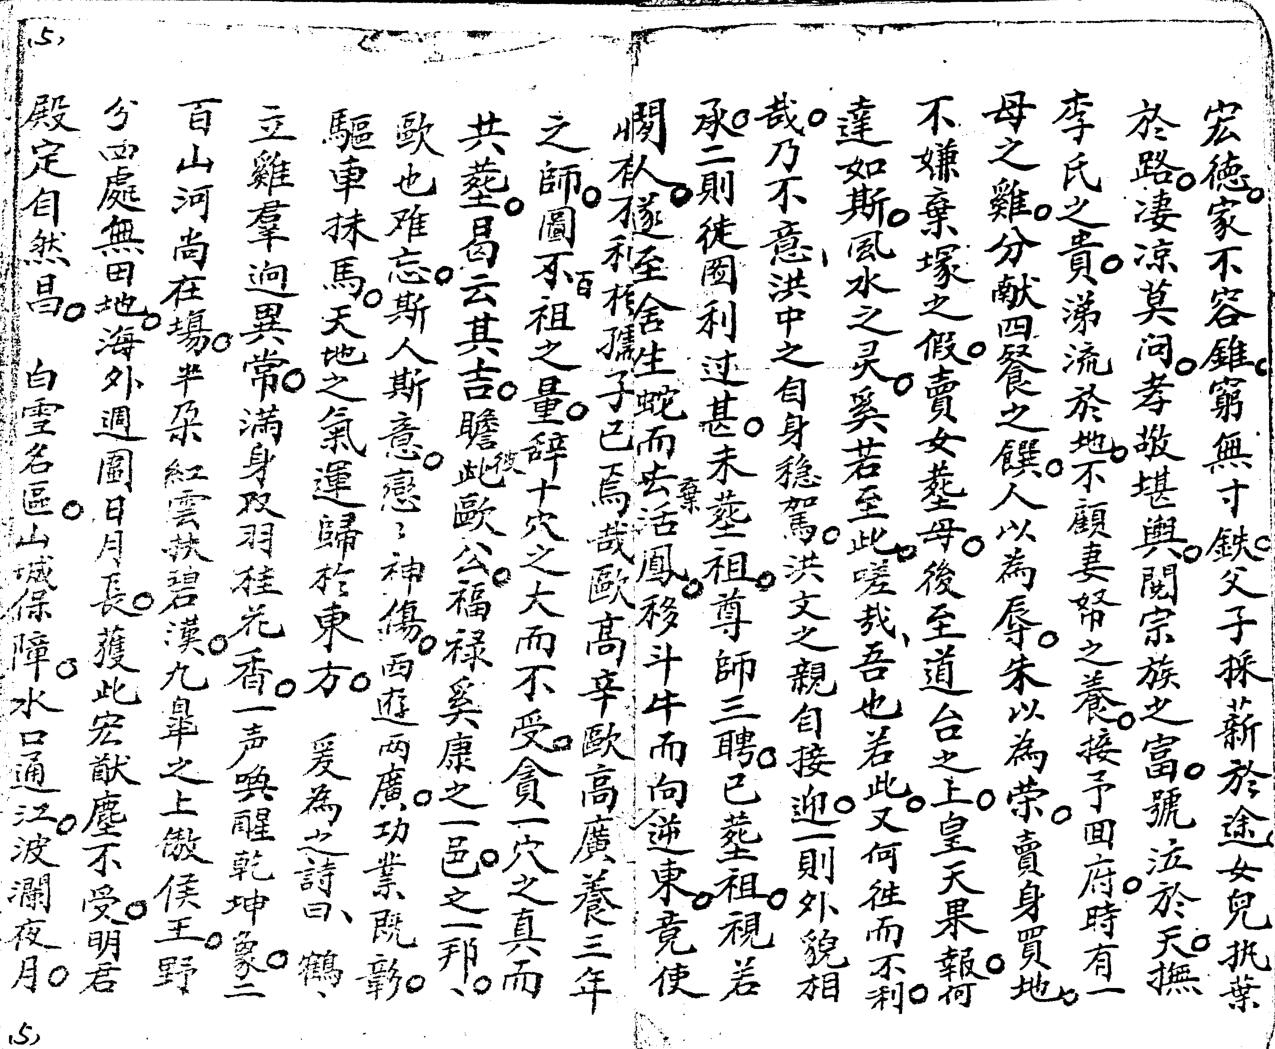 宏德。家不容錐。窮無寸鉄。父子採薪於途。女兒执葉
於路。凄凉莫问。孝敬堪輿。閱宗族之富。號泣於天。撫
李氏之貴。涕流於地。不顧妻帑之養。接予囬府。時有一
母之雞。分献四餐之饌。人以為辱。朱以為荣。賣身買地。
不嫌棄塚之假。賣女塟母。後至道台之上。皇天果報。何
達如斯。風水之灵。奚若至此。嗟哉、吾也若此。又何徃而不利。
哉。乃不意、洪中之自身稳駕。洪文之親自接迎。一則外貌相
承。二則徒圖利过甚。未塟祖。尊師三聘。已塟祖。視若
閒人。遂至舍生蛇而去棄活鳳。移斗牛而向逆東。竟使
子已焉哉歐高辛歐高廣養三年
之師。圖不百祖之量。辞十穴之大而不受。貪一穴之真而
共塟。曷云其吉。瞻此彼歐公。福禄奚康之一邑。之一邦、。
歐也难忘。斯人斯意。戀〻神傷。西遊两廣。功業既彰。
驅車抹馬。天地之氣運歸於東方。 爰為之詩曰、鶴、
立雞羣逈異常。满身双羽桂花香。一声喚醒乾坤象。二
百山河尚在塲。半朶紅雲扶碧漢。九臯之上傲侯王。野
兮西處無田地。海外週圖日月長。獲此宏猷塵不受。明君
殿定自然昌。 白雪名區。山城保障。水口通江。波瀾夜月。
5
5